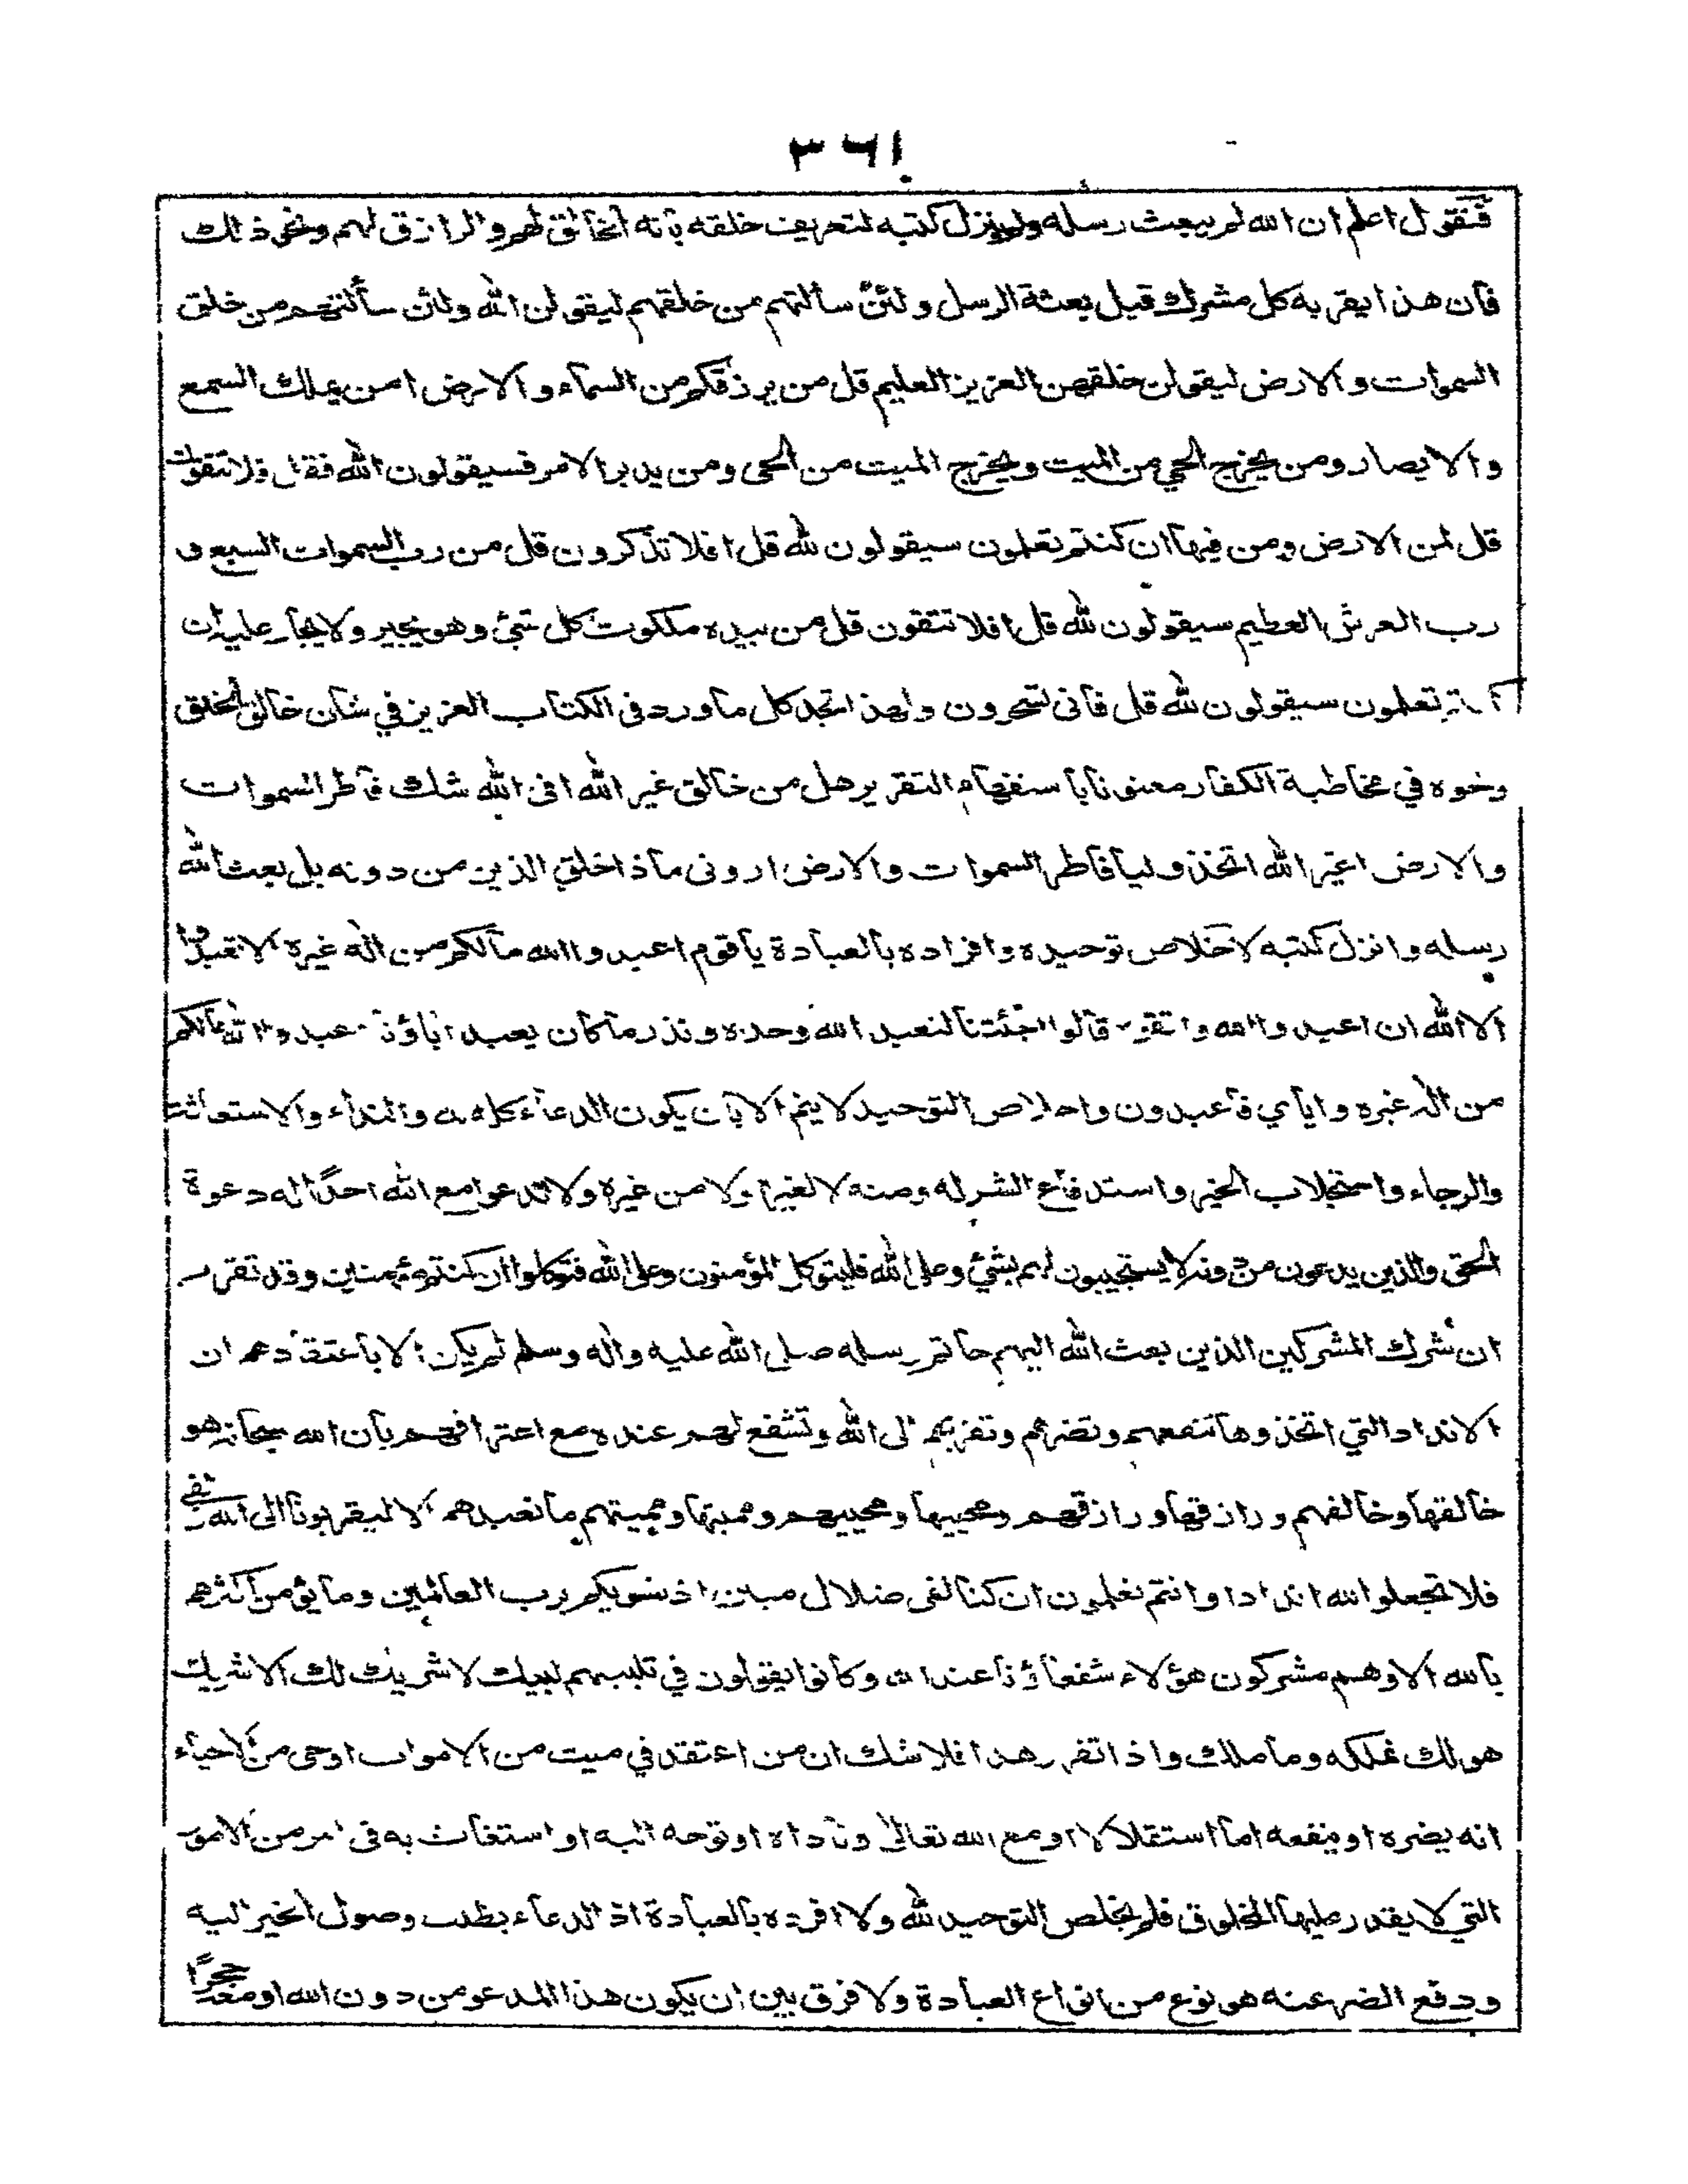 ٣٦١
فنقول اعلم ان الله لم يبعث رسله ولم ينزل كتبه لتعريف خلقه بانه الخالق لهم والرازق لهم ونحو ذلك
فان هذا يقر به كل مشرك قبل بعثة الرسل ولئن سألتهم من خلقهم ليقولن الله ولئن سألتهم من خلق
السموات والارض ليقولن خلقهن العزيز العليم قل من يرزقكم من السماء والارض امن يملك السمع
والابصار ومن يخرج الحي من الميت ويخرج الميت من الحي ومن يدبر الامر فسيقولون الله فقل افلا تتقون
قل لمن الارض ومن فيها ان كنتم تعلمون سيقولون لله قل افلا تذكرون قل من رب السموات السبع و
رب العرش العظيم سيقولون لله قل افلا تتقون قل من بيده ملكوت كل شئ وهو يجير ولا يجار عليه ان
كنتم تعلمون سيقولون لله قل فانى تسحرون ولهذا تجد كل ما ورد في الكتاب العزيز في شان خالق الخلق
ونحوه في مخاطبة الكفار معنونا باستفهام التقرير هل من خالق غير الله افى الله شك فاطر السموات
والارض اغير الله اتخذ وليا فاطر السموات والارض ارونى ماذا خلق الذين من دونه بل بعث الله
رسله وانزل كتبه لاخلاص توحيده وافراده بالعبادة ياقوم اعبدوا الله مالكم من اله غيره الا تعبدوا
الا الله ان اعبدوا الله واتقوه قالوا اجئتنا لنعبد الله وحده ونذر ما كان يعبد اباؤنا اعبدوا الله مالكم
من اله غيره واياي فاعبدون واخلاص التوحيد لا يتم الا بان يكون الدعاء كله لله والنداء والاستعانة
والرجاء واستجلاب الخير واستدفاع الشر له ومنه لا لغيره ولا من غيره ولا تدعوا مع الله احدًا له دعوة
الحق والذين يدعون من دونه لا يستجيبون لهم بشئ وعلى الله فليتوكل المؤمنون وعلى الله فتوكلوا ان كنتم مؤمنين وقد تقرر
ان شرك المشركين الذين بعث الله اليهم خاتم رسله صلى الله عليه واله وسلم لم يكن الا باعتقادهم ان
الانداد التي اتخذوها تنفعهم وتضرهم وتقربهم الى الله وتشفع لهم عنده مع اعترافهم بان الله سبحانه هو
خالقها وخالقهم ورازقها ورازقهم ومحييها ومحييهم ومميتها ومميتهم ما نعبدهم الا ليقربونا الى الله زلفى
فلا تجعلوا لله اندادا وانتم تعلمون ان كنا لفى ضلال مبين اذ نسويكم برب العالمين وما يؤمن اكثرهم
بالله الا وهم مشركون هؤلاء شفعاؤنا عند الله وكانوا يقولون في تلبيتهم لبيك لا شريك لك الا شريك
هو لك تملكه وما ملك واذا تقرر هذا فلا شك ان من اعتقد في ميت من الاموات او حى من الاحياء
انه يضره او ينفعه اما استقلالا او مع الله تعالى وناداه او توجه اليه او استغاث به فى امر من الامور
التي لا يقدر عليها المخلوق فلم يخلص التوحيد لله ولا افرده بالعبادة اذ الدعاء بطلب وصول الخير اليه
ودفع الضر عنه هو نوع من انواع العبادة ولا فرق بين ان يكون هذا المدعو من دون الله او معه حجرًا